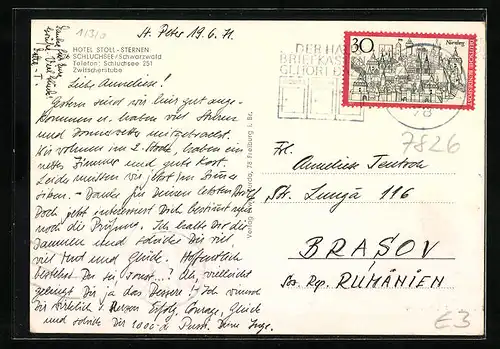 11/3/0
St. Peter 19.6.71.
HOTEL STOLL - STERNEN
SCHLUCHSEE/Schwarzwald
Telefon: Schluchsee 251
Zwitscherstube
Liebe Anneliese!
Gestern sind wir hier gut ange-
kommen u. haben viel Sturm
und Donnerwetter mitgebracht.
Wir wohnen im 2. Stock, haben ein
nettes Zimmer und gute Kost.
Leider müssen wir jetzt im Zimmer
sitzen. - Danke für Deinen letzten Brief
Doch jetzt interessiert Dich bestimmt nur
noch die Prüfung. Ich halte Dir die
Daumen und schicke Dir viel,
viel Mut und Glück. Hoffentlich
bestehst Du sie sonst...? Ach, vielleicht
gelingt Dir ja das Bessere! Ich wünsche
Dir wirklich v. Herzen Erfolg, Courage, Glück
und schicke Dir 1000-x Puss. Deine Inge.
Verlag 78 Freiburg i. Br.
DER HA
BRIEFKAS
GEHÖRT
30
Nürnberg
DEUTSCHE BUNDESPOST
78
7826
Frl.
Anneliese Teutsch
Str. Lungă 116
BRAŞOV
Soz. Rep. RUMÄNIEN
E3